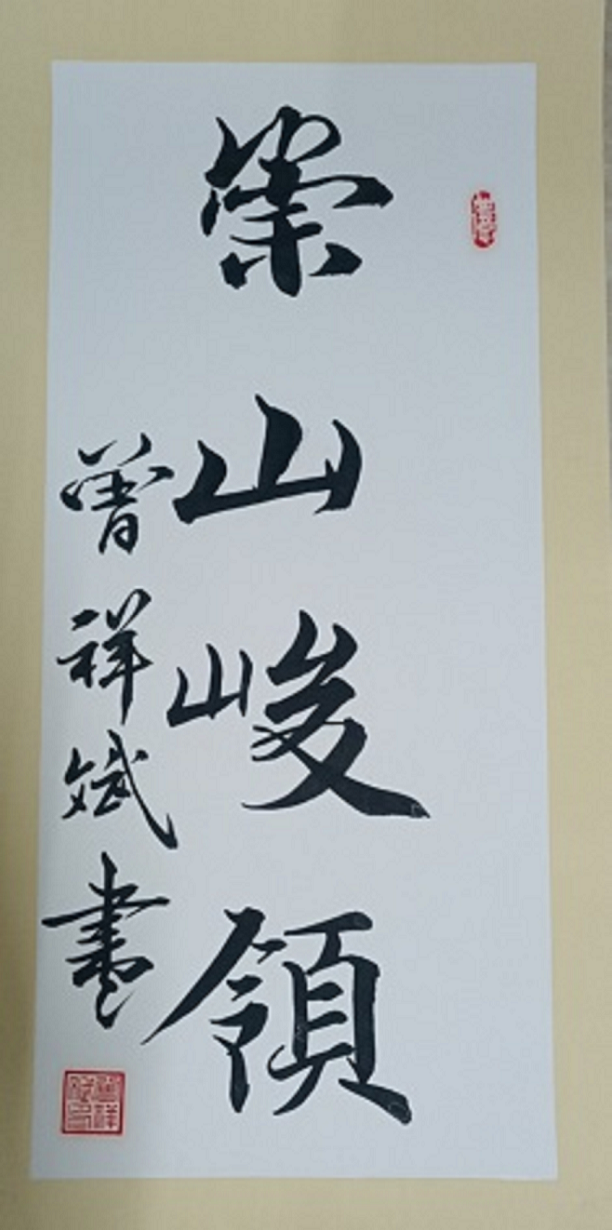 崇山峻領
曾祥斌書